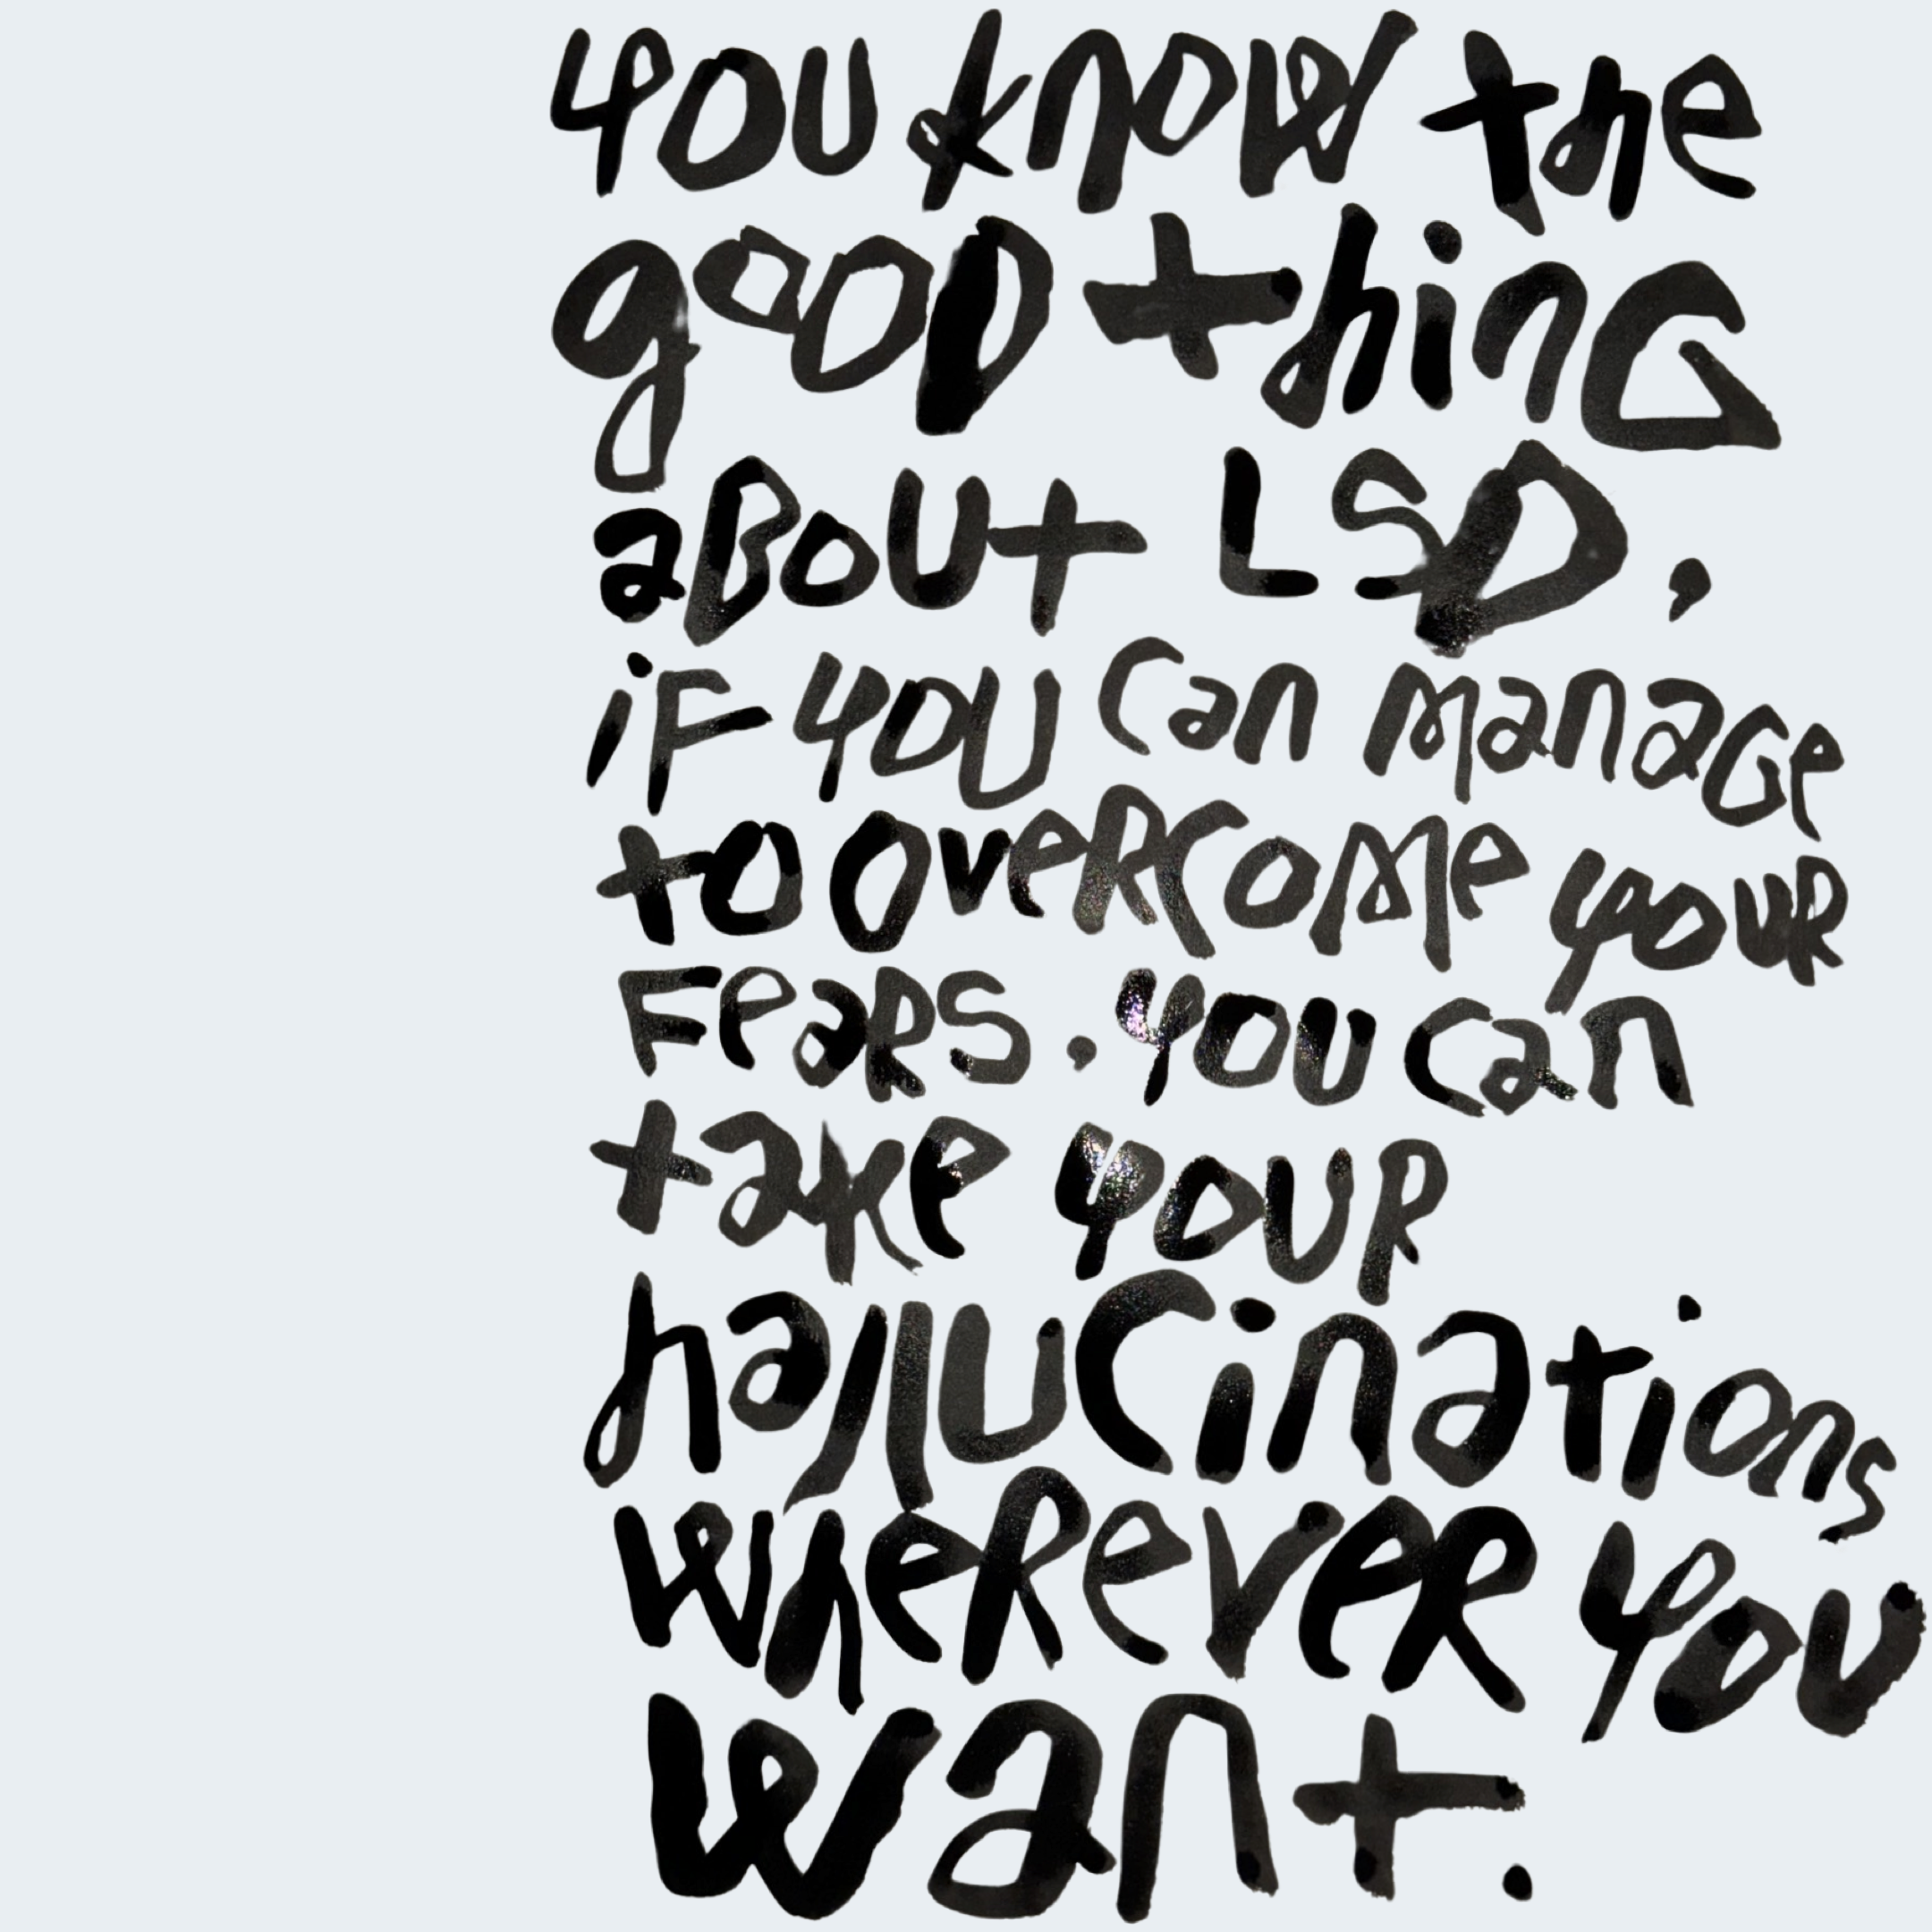 you know the
gooD thinG
aBout LSD,
iF you can manaGe
to oveRcome youR
FeaRs. you can
take youR
hallucinations
wheReveR you
want.